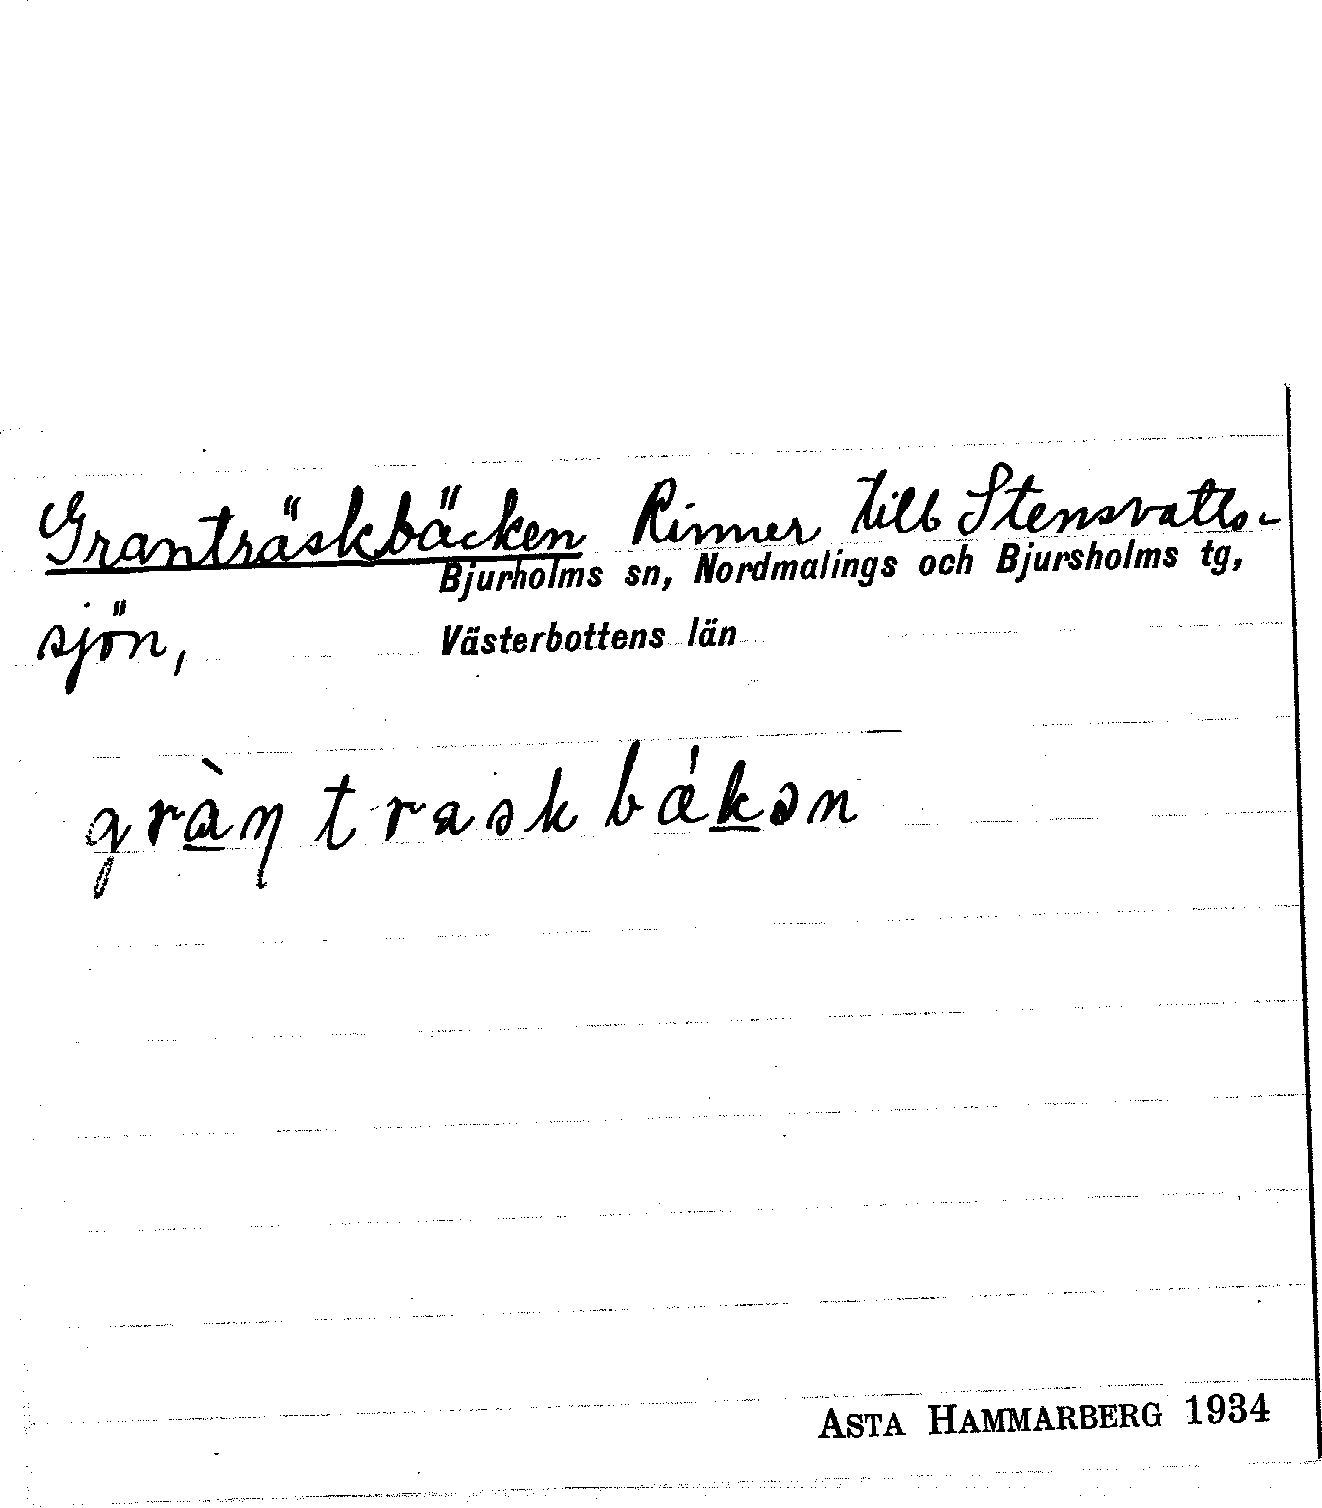 Granträskbäcken Rinner till Stensvatts-
Bjurholms sn, Nordmalings och Bjursholms tg,
sjön, Västerbottens län
gràŋtraskbǽkən
ASTA HAMMARBERG 1934